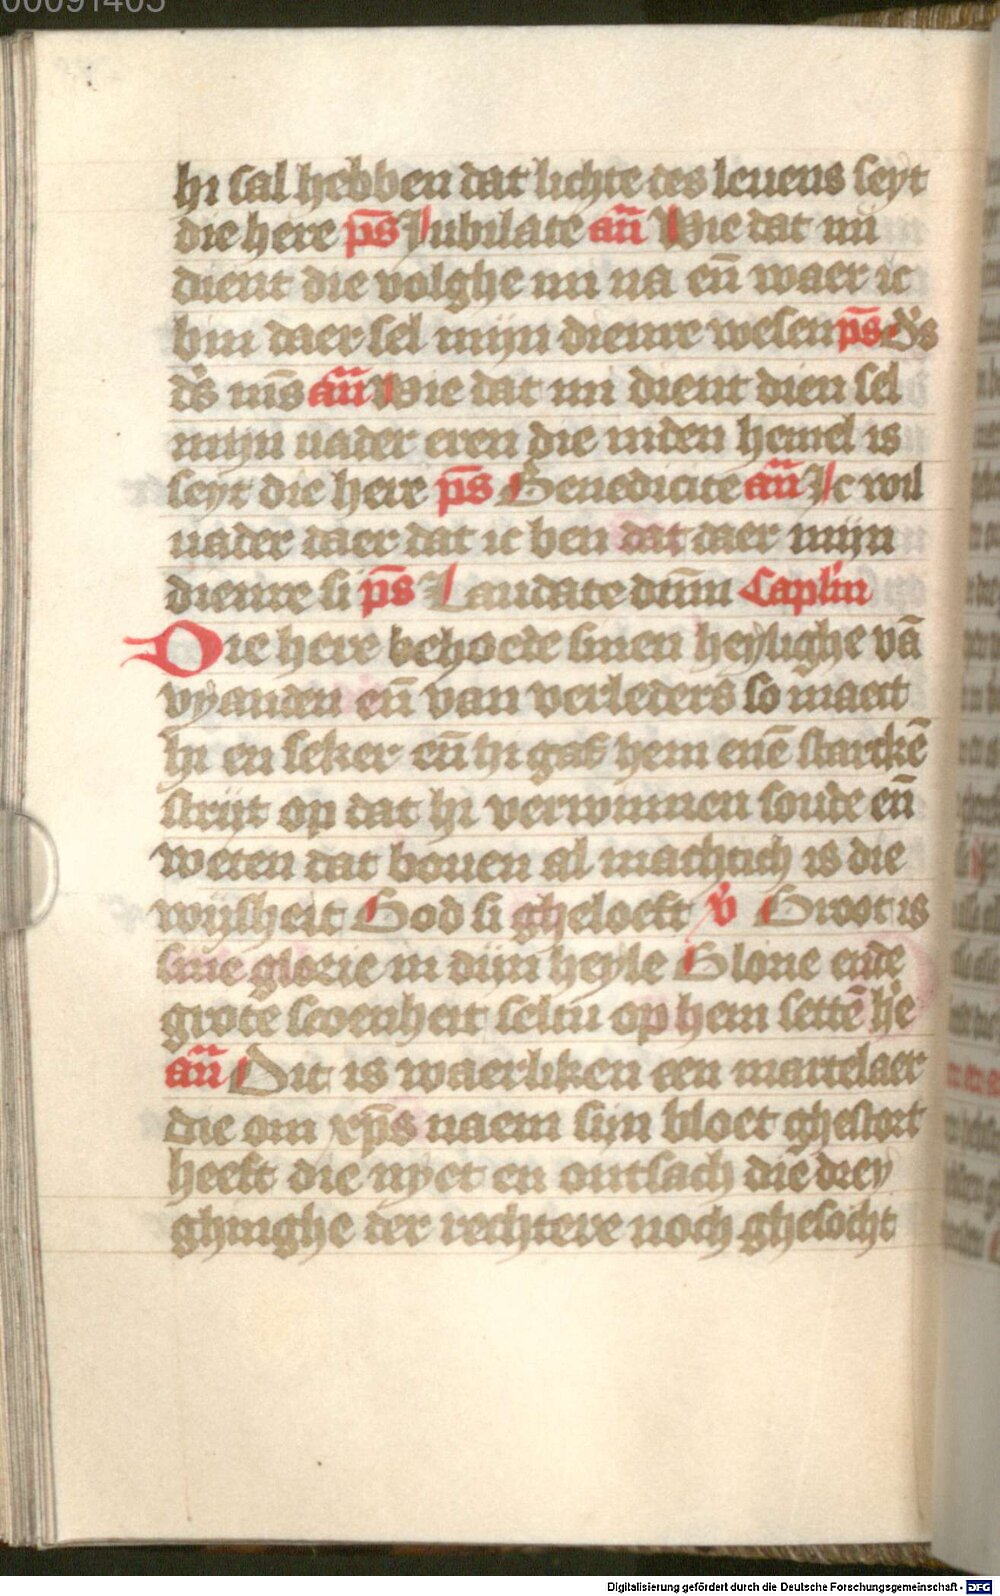 00091405
hi sal hebben dat lichte des leuens seyt
die here ps̄ Jubilate an̄ Wie dat mi
dient die volghe mi na en̄ waer ic
bin daer sel mijn dienre wesen ps̄ Ds̄
ds̄ ms̄ an̄ Wie dat mi dient dien sel
mijn uader eren die inden hemel is
seyt die here ps̄ Benedicite an̄ Ic wil
uader daer dat ic ben dat daer mijn
dienre si ps̄ Laudate dnm̄ Caplm̄
Die here behoede sinen heylighe vā
vyanden en̄ van verleders so maect
hi en seker en̄ hi gaf hem enē starckē
strijt op dat hi verwinnen soude en̄
weten dat bouen al machtich is die
wijsheit God si gheloeft v̄ Groot is
sine glorie in dijn heyle Glorie ende
grote scoenheit seltu op hem settē he᷑
an̄ Dit is waerliken een martelaer
die om xp̄s naem sijn bloet ghestort
heeft die nyet en ontsach die drey
ghinghe der rechtere noch ghesocht
Digitalisierung gefördert durch die Deutsche Forschungsgemeinschaft - DFG